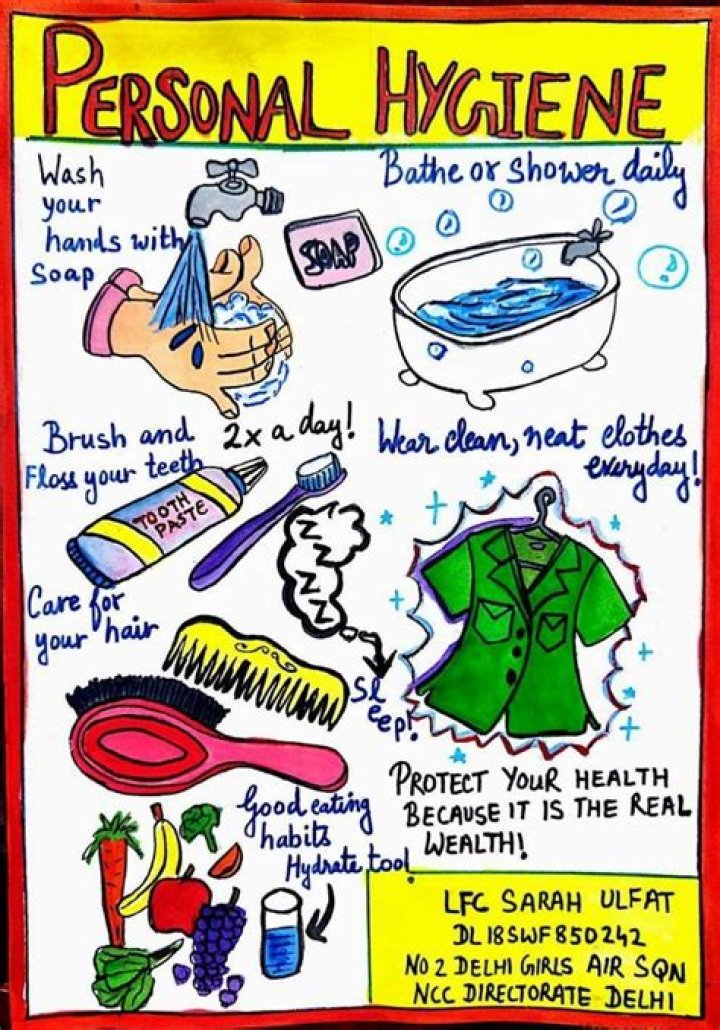 PERSONAL HYGIENE
Wash
your
hands with
Soap
SOAP
Bathe or shower daily
Brush and
Floss your teeth
2x a day!
TOOTH
PASTE
Wear clean, neat clothes
everyday!
Care for
your hair
Z
Z
Z
Z
Sl
eep!
PROTECT YOUR HEALTH
BECAUSE IT IS THE REAL
WEALTH!
Good eating
habits
Hydrate too!
LFC SARAH ULFAT
DL18SWF850242
NO 2 DELHI GIRLS AIR SQN
NCC DIRECTORATE DELHI